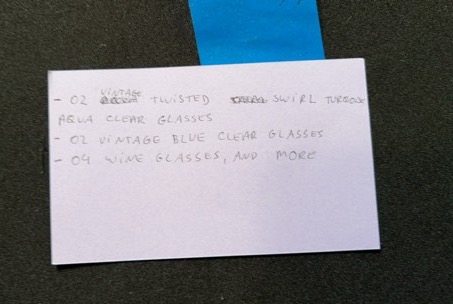 - 02 VINTAGE TWISTED SWIRL TURQOUISE
AQUA CLEAR GLASSES
- 02 VINTAGE BLUE CLEAR GLASSES
- 04 WINE GLASSES, AND MORE